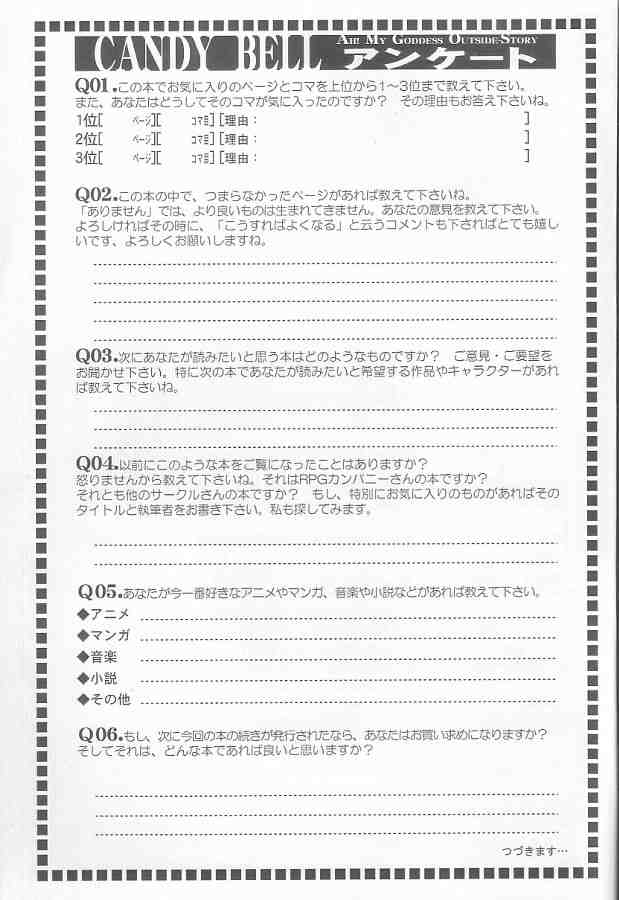 CANDY BELL
AH! MY GODDESS OUTSIDE-STORY
アンケート
Q01.この本でお気に入りのページとコマを上位から1〜3位まで教えて下さい。
また、あなたはどうしてそのコマが気に入ったのですか？　その理由もお答え下さいね。
1位[　　ページ][　　コマ目][理由：　　　　　　]
2位[　　ページ][　　コマ目][理由：　　　　　　]
3位[　　ページ][　　コマ目][理由：　　　　　　]
Q02.この本の中で、つまらなかったページがあれば教えて下さいね。
「ありません」では、より良いものは生まれてきません。あなたの意見を教えて下さい。
よろしければその時に、「こうすればよくなる」と云うコメントも下さればとても嬉し
いです、よろしくお願いしますね。
Q03.次にあなたが読みたいと思う本はどのようなものですか？　ご意見・ご要望を
お聞かせ下さい。特に次の本であなたが読みたいと希望する作品やキャラクターがあれ
ば教えて下さいね。
Q04.以前にこのような本をご覧になったことはありますか？
怒りませんから教えて下さいね。それはRPGカンパニーさんの本ですか？
それとも他のサークルさんの本ですか？　もし、特別にお気に入りのものがあればその
タイトルと執筆者をお書き下さい。私も探してみます。
Q05.あなたが今一番好きなアニメやマンガ、音楽や小説などがあれば教えて下さい。
◆アニメ
◆マンガ
◆音楽
◆小説
◆その他
Q06.もし、次に今回の本の続きが発行されたなら、あなたはお買い求めになりますか？
そしてそれは、どんな本であれば良いと思いますか？
つづきます…